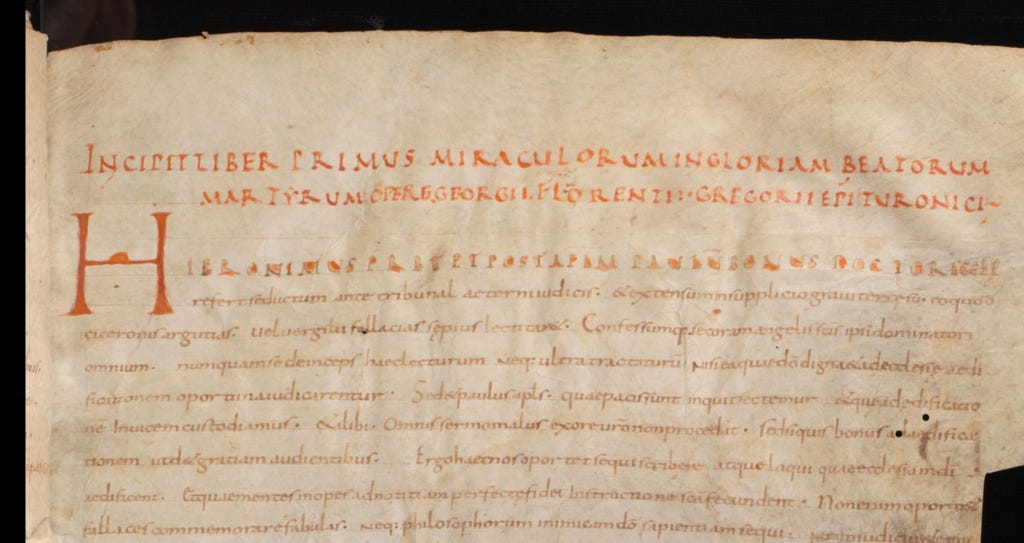 INCIPIT LIBER PRIMUS MIRACULORUM IN GLORIAM BEATORUM
MARTYRUM OPERE GEORGII FLORENTII · GREGORII EPI TURONICI
HIERONIMUS PRBT ET POST APLM PAULU BONUS DOCTOR
refert se ductum ante tribunal aeterni iudicis · & extensum in supplicio graviter cęsū · eo quod
ciceronis argutias · vel vergilii fallacias sępius lectitar& · Confessumq; se coram angelis scis ipsi dominatori
omnium · numquam se deinceps haec lecturum neq; ultra tractaturū nisi ea quae dō digna & ad ecclesię aedi
ficationem oportuna iudicarentur · Sed & paulus apls · quae pacis sunt inquit sectemur · & quae ad edificatio
ne invicem custodiamus · & alibi · Omnis sermo malus ex ore urō non procedat · sed siquis bonus ad aedifica
tionem ut d& gratiam audientibus · Ergo haec nos oport& sequi scribere atque loqui quae ecclesiam di
aedificent · Et quae mentes inopes ad notitiam perfectę fidei instructione scā fecundent · Non enim oport&
fallaces commemorare fabulas · neq; philosophorum inimicam dō sapientiam sequi ·